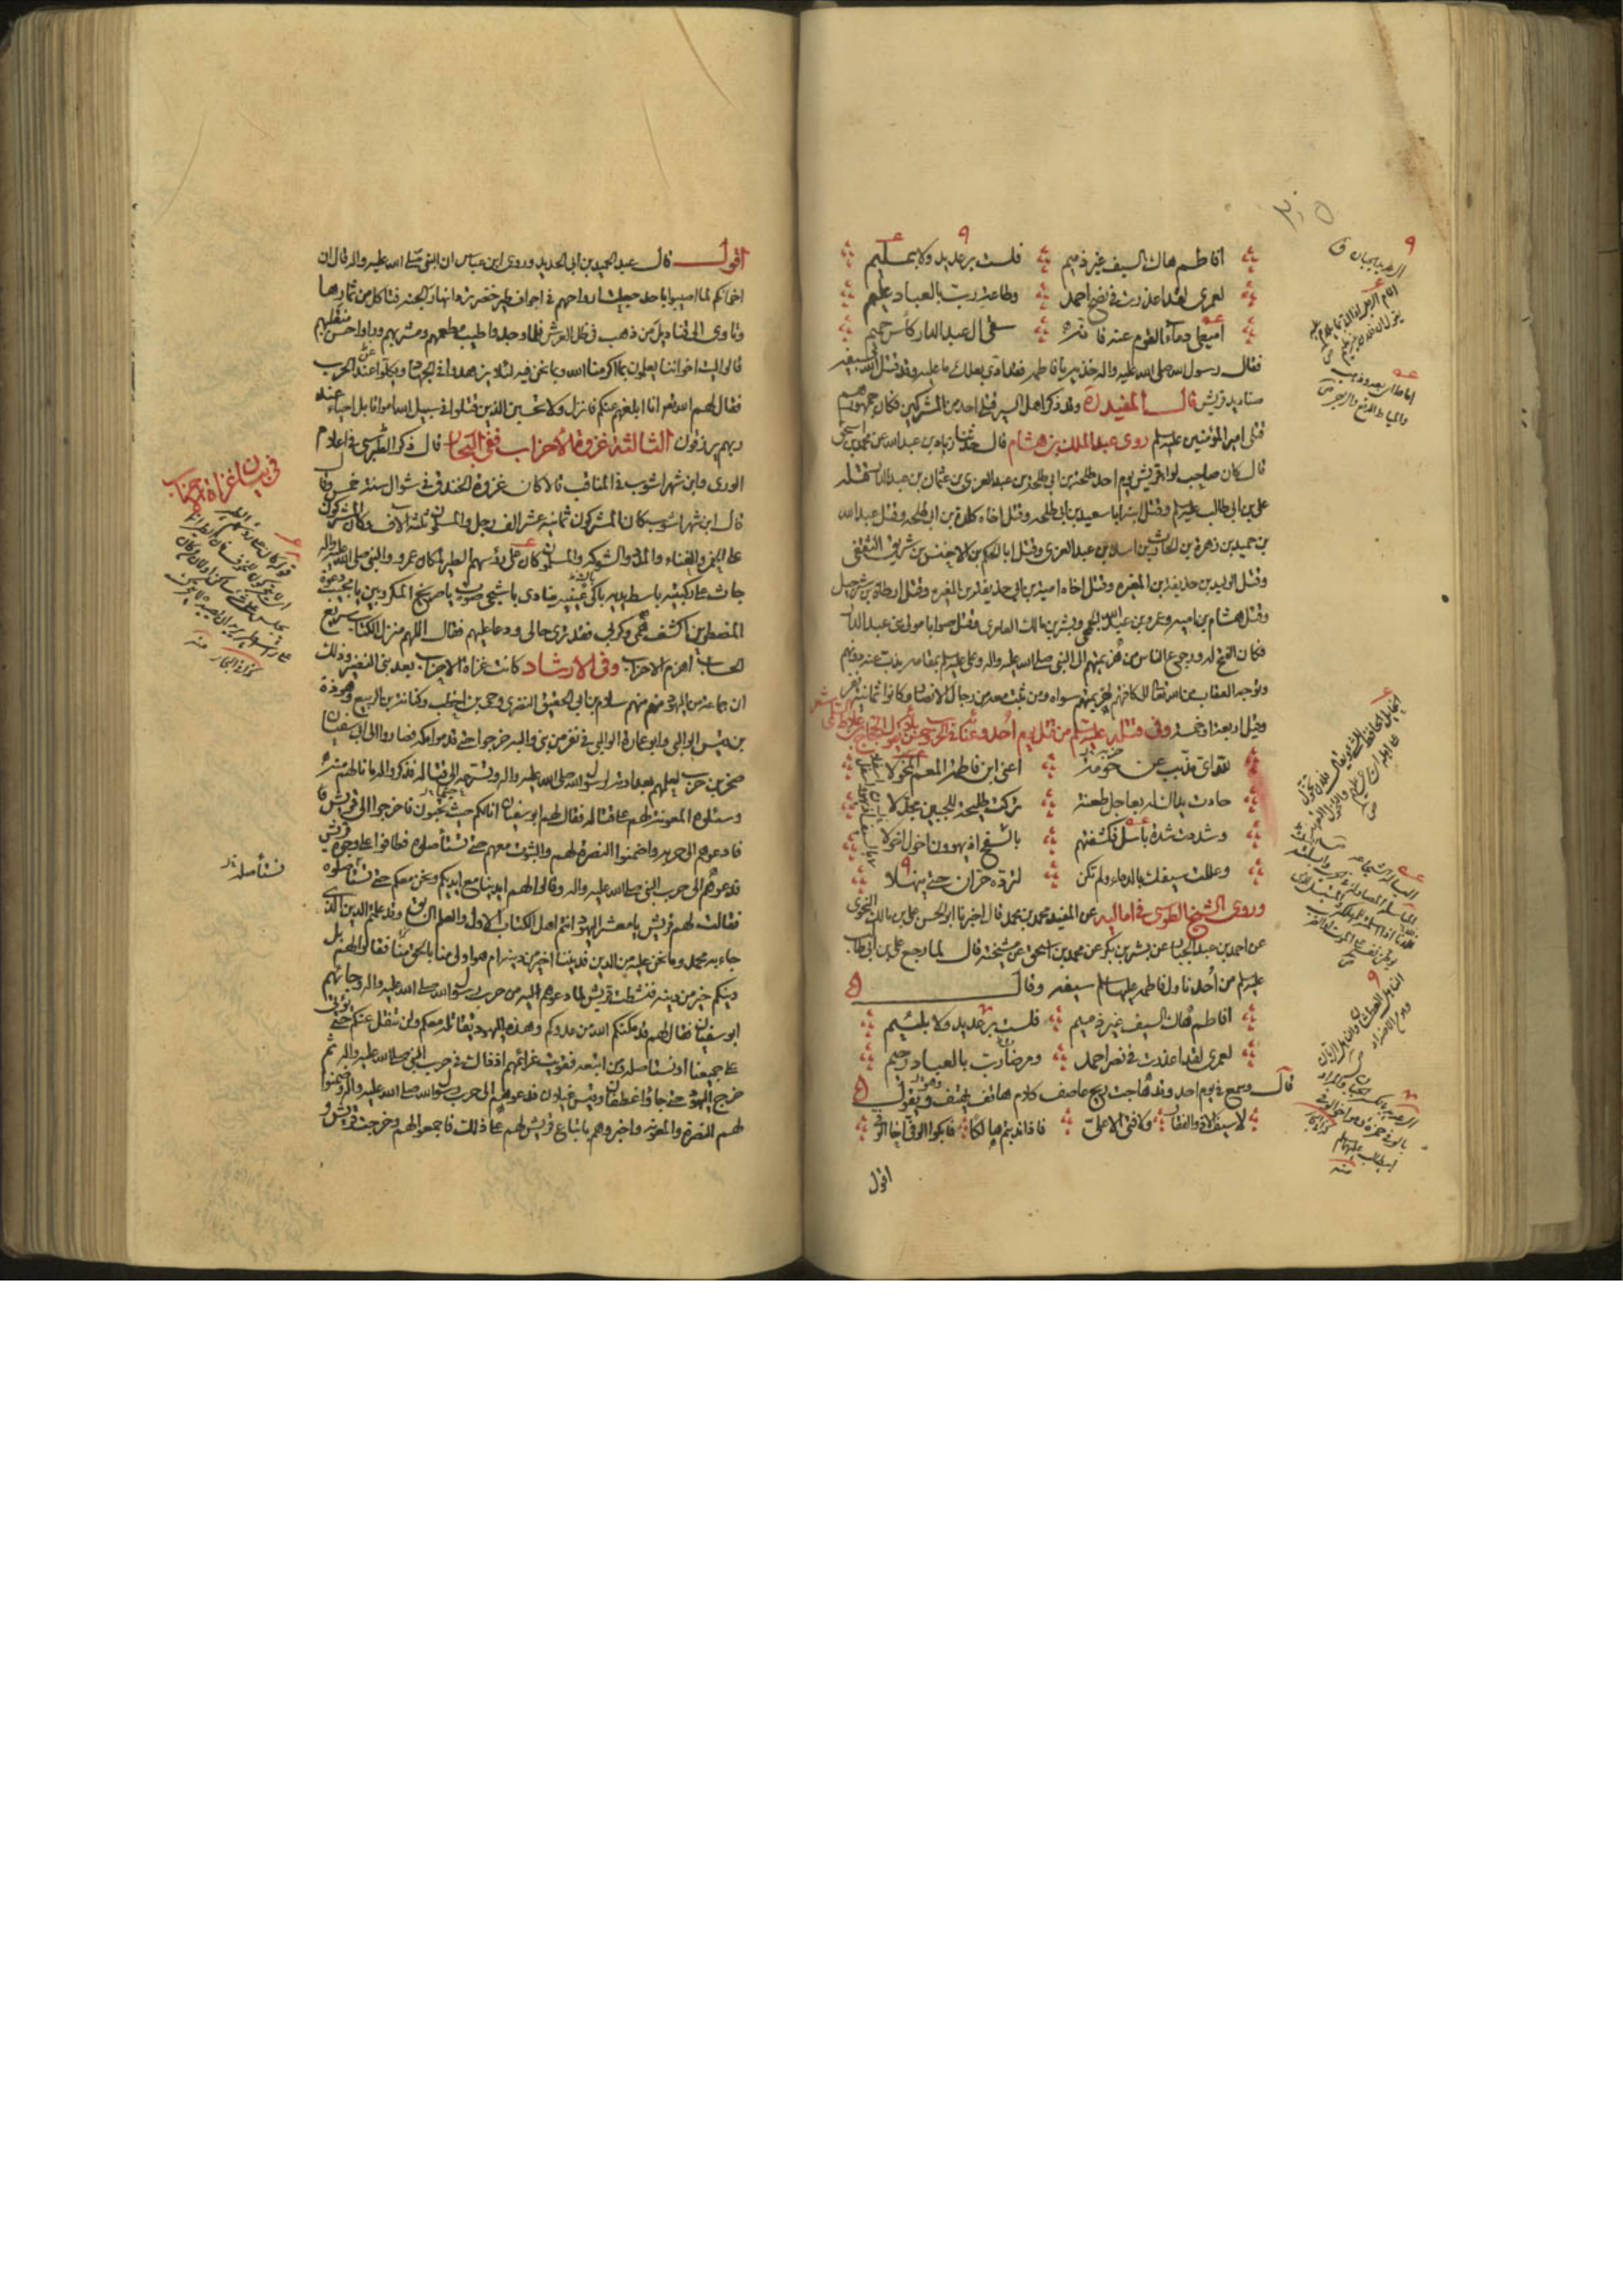 افاطم هاك السيف غير ذميم فلست برعديد ولا بمليم
لعمري لقد اعذرت في نصر احمد وطاعة رب بالعباد عليم
اميطي دماء القوم عنه فانه سقى آل عبد الدار كأس حميم
فقال رسول الله صلى الله عليه واله خذيه يا فاطمه فقد ادى بعلك ما عليه وقد قتل الله بسيفه
صناديد قريش قال المفيد ره وقد ذكر اهل السير قتلى احد من المشركين فكان جمهورهم
قتلى امير المؤمنين عليه السلم روى عبد الملك بن هشام قال حدثنا زياد بن عبد الله عن محمد بن اسحق
قال كان صاحب لواء قريش يوم احد طلحة بن ابي طلحة بن عبد العزى بن عثمان بن عبد الدار قتله
علي بن ابي طالب عليه السلم وقتل ابنه ابا سعيد بن ابي طلحه وقتل اخاه كلدة بن ابي طلحه وقتل عبد الله
بن حميد بن زهرة بن الحارث بن اسد بن عبد العزى وقتل ابا الحكم بن الاخنس بن شريق الثقفي
وقتل الوليد بن حذيفة بن المغيره وقتل اخاه امية بن ابي حذيفة بن المغيره وقتل ارطاة بن شرحبيل
وقتل هشام بن اميه وعمرو بن عبد الله الجمحي وبشر بن مالك العامري وقتل صوابا مولى بني عبد الدار
فكان الفتح له ورجوع الناس من هزيمتهم الى النبي صلى الله عليه واله
وتوجه العتاب من الله تعالى الى كافتهم لهزيمتهم سواه ومن ثبت معه من رجال الانصار وكانوا ثمانية نفر
وقيل اربعة او خمسة وفي قتله عليه السلم من قتل يوم احد وغنائه في الحرب وحسن بلائه يقول الحجاج بن علاط السلمي
لله اي مذبب عن حرمة اعني ابن فاطمة المعم المخولا
جادت يداك له بعاجل طعنة تركت طليحة للجبين مجدلا
وشددت شدة باسل فكشفتهم بالسفح اذ يهوون اخول اخولا
وعللت سيفك بالدماء ولم تكن لترده حران حتى ينهلا
وروى الشيخ الطوسي في اماليه عن المفيد محمد بن محمد قال اخبرنا ابو الحسن علي بن مالك النحوي
عن احمد بن عبد الجبار عن بشر بن بكر عن محمد بن اسحق عن مشيخته قال لما رجع علي بن ابي طالب
عليه السلم من أحد ناول فاطمه عليها السلم سيفه وقال
افاطم هاك السيف غير ذميم فلست برعديد ولا بلئيم
لعمري لقد اعذرت في نصر احمد ومرضاة رب بالعباد رحيم
قال وسمع يوم احد وقد هاجت ريح عاصف كلام هاتف يهتف وهو يقول
لا سيف الا ذو الفقار ولا فتى الا علي فاذا ندبتم هالكا فابكوا الوفي اخا الوفي
اقول
اقول قال عبد الحميد بن ابي الحديد وروى ابن عباس ان النبي صلى الله عليه واله قال ان
اخوانكم لما اصيبوا باحد جعلت ارواحهم في اجواف طير خضر ترد انهار الجنه فتاكل من ثمارها
وتاوى الى قناديل من ذهب في ظل العرش فلما وجدوا طيب مطعمهم ومشربهم وراوا حسن منقلبهم
قالوا ليت اخواننا يعلمون بما اكرمنا الله وبما نحن فيه لئلا يزهدوا في الجهاد ويكلوا عند الحرب
فقال لهم الله تعالى انا ابلغهم عنكم فانزل ولا تحسبن الذين قتلوا في سبيل الله امواتا بل احياء عند
ربهم يرزقون الثالثة غزوة الاحزاب ففي البحار قال ذكر الطبرسي في اعلام
الورى وابن شهراشوب في المناقب قالا كان غزوة الخندق في شوال سنة خمس وقا
قال ابن شهراشوب كان المشركون ثمانية عشر الف رجل والمسلمون ثلثة الاف وكان المشركون
على الخمر والغناء والمدد والشوكه والمسلمون كان على رؤسهم الطير لمكان عمرو والنبي صلى الله عليه واله
جاث على ركبتيه باسط يديه باك عينيه ينادي باشجى صوت يا صريخ المكروبين يا مجيب دعوة
المضطرين اكشف همي وكربي فقد ترى حالي ودعا عليهم فقال اللهم منزل الكتاب سريع
الحساب اهزم الاحزاب وفي الارشاد كانت غزاة الاحزاب بعد بني النضير وذلك
ان جماعة من اليهود منهم سلام بن ابي الحقيق النضري وحي بن اخطب وكنانة بن الربيع وهوذة
بن قيس الوالبي وابو عمارة الوالبي في نفر من بني والبه خرجوا حتى قدموا مكه فصاروا الى ابي سفيان
صخر بن حرب لعلمهم بعداوته لرسول الله صلى الله عليه واله وتسرعه الى قتاله فذكروا له ما نالهم منه
وسئلوه المعونة لهم على قتاله فقال لهم ابو سفيان انا لكم حيث تحبون فاخرجوا الى قريش فا
فادعوهم الى حربه واضمنوا النصرة لهم والثبوت معهم حتى تستأصلوه فطافوا على وجوه قريش
فدعوهم الى حرب النبي صلى الله عليه واله وقالوا لهم ايدينا مع ايديكم ونحن معكم حتى نستأصلوه
فقالت لهم قريش يا معشر اليهود انتم اهل الكتاب الاول والعلم السابق وقد علمتم الدين الذي
جاء به محمد وما نحن عليه من الدين فديننا خير من دينه ام هو اولى منا بالحق منا فقالوا لهم بل
دينكم خير من دينه فنشطت قريش لما دعوهم اليه من حرب رسول الله صلى الله عليه واله وجائهم
ابو سفيان فقال لهم قد مكنكم الله من عدوكم وهذه اليهود يقاتله معكم ولن تنفل عنكم حتى يؤتى
على جميعنا او نستاصله ومن اتبعه فقويت عزائمهم اذ ذاك في حرب النبي صلى الله عليه واله ثم
خرج اليهود حتى جاؤا غطفان وقيس غيلان فدعوهم الى حرب رسول الله صلى الله عليه واله وضمنوا
لهم النصرة والمعونه واخبروهم باتباع قريش لهم على ذلك فاجمعوا لهم وخرجت قريش و
في بيان غزاة الاحزاب
نستأصله